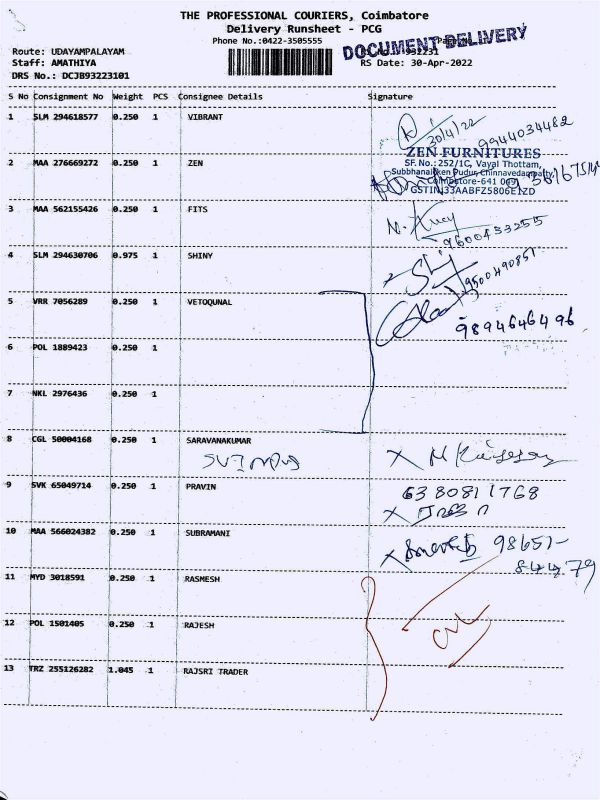 THE PROFESSIONAL COURIERS, Coimbatore
Delivery Runsheet - PCG
Phone No.:0422-3505555
DOCUMENT DELIVERY
Route: UDAYAMPALAYAM
Staff: AMATHIYA
RS Date: 30-Apr-2022
DRS No.: DCJB93223101
S No Consignment No Weight PCS Consignee Details Signature
1 SLM 294618577 0.250 1 VIBRANT 30/4/22 9944034482
2 MAA 276669272 0.250 1 ZEN
ZEN FURNITURES
SF. No.: 252/1C, Vayal Thottam,
Subbhanaicken Pudur, Chinnavedampatty
Coimbatore-641 049
3 MAA 562155426 0.250 1 FITS
4 SLM 294630706 0.975 1 SHINY
5 VRR 7056289 0.250 1 VETOQUNAL 9894646496
6 POL 1889423 0.250 1
7 NKL 2976436 0.250 1
8 CGL 50004168 0.250 1 SARAVANAKUMAR
9 SVK 65049714 0.250 1 PRAVIN 6380811768
10 MAA 566024382 0.250 1 SUBRAMANI 98651-
84479
11 MYD 3018591 0.250 1 RASMESH
12 POL 1501405 0.250 1 RAJESH
13 TRZ 255126282 1.045 1 RAJSRI TRADER